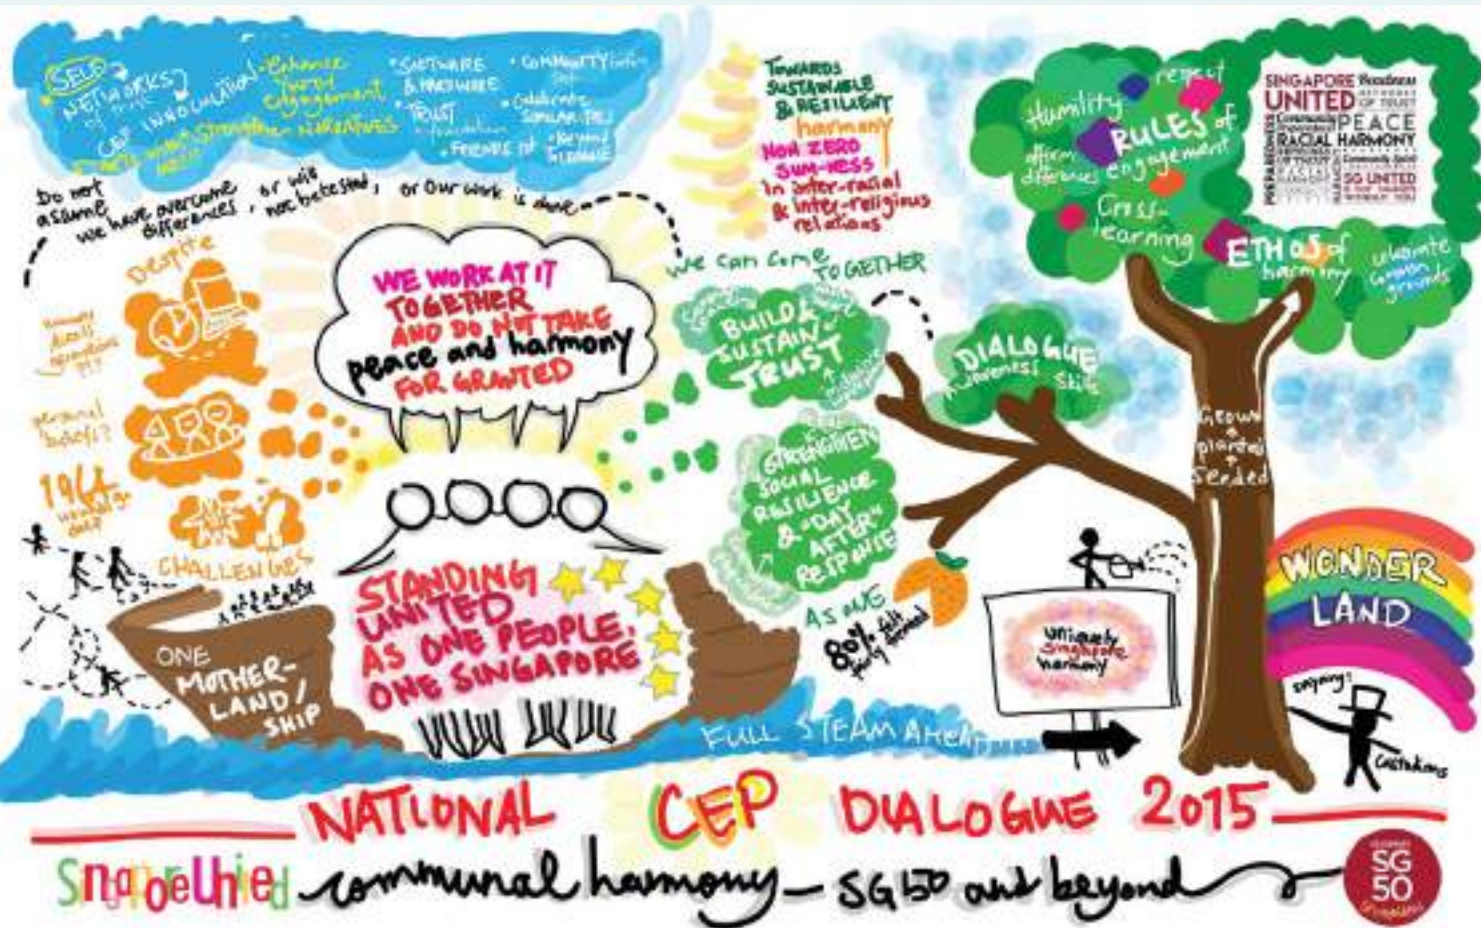 SELF
NETWORKS
of trust
CEP INNOCULATION
Enhance
Youth
Engagement
Strengthen NARRATIVES
• SOFTWARE
& HARDWARE
• TRUST
foundation
• FRIENDS 1st
• COMMUNITY
• Celebrate
SIMILARITIES
Do not
assume
we have overcome
differences,
or will
not be tested,
or Our work is done
TOWARDS
SUSTAINABLE
& RESILIENT
harmony
NON ZERO
SUM-NESS
In inter-racial
& inter-religious
relations
Humility
respect
RULES of
engagement
affirm
differences
Cross-
learning
ETHOS of
harmony
celebrate
common
grounds
SINGAPORE Readiness
UNITED NETWORKS
OF TRUST
PEACE
RACIAL HARMONY
PREPAREDNESS
Community Spirit
SG UNITED
IS NOT SINGAPORE
WITHOUT YOU
Despite
personal
beliefs?
1964
CHALLENGES
WE WORK AT IT
TOGETHER
AND DO NOT TAKE
peace and harmony
FOR GRANTED
we can come
TOGETHER
BUILD &
SUSTAIN
TRUST
DIALOGUE
awareness skills
STRENGTHEN
SOCIAL
RESILIENCE
& "DAY
AFTER"
RESPONSE
AS ONE
80% felt
Grown
planted
seeded
STANDING
UNITED
AS ONE PEOPLE,
ONE SINGAPORE
ONE
MOTHER-
LAND/
SHIP
uniquely
Singapore
harmony
WONDER
LAND
enjoying!
Custodians
FULL STEAM AHEAD
NATIONAL CEP DIALOGUE 2015
SingaporeUnited communal harmony - SG50 and beyond
SG
50